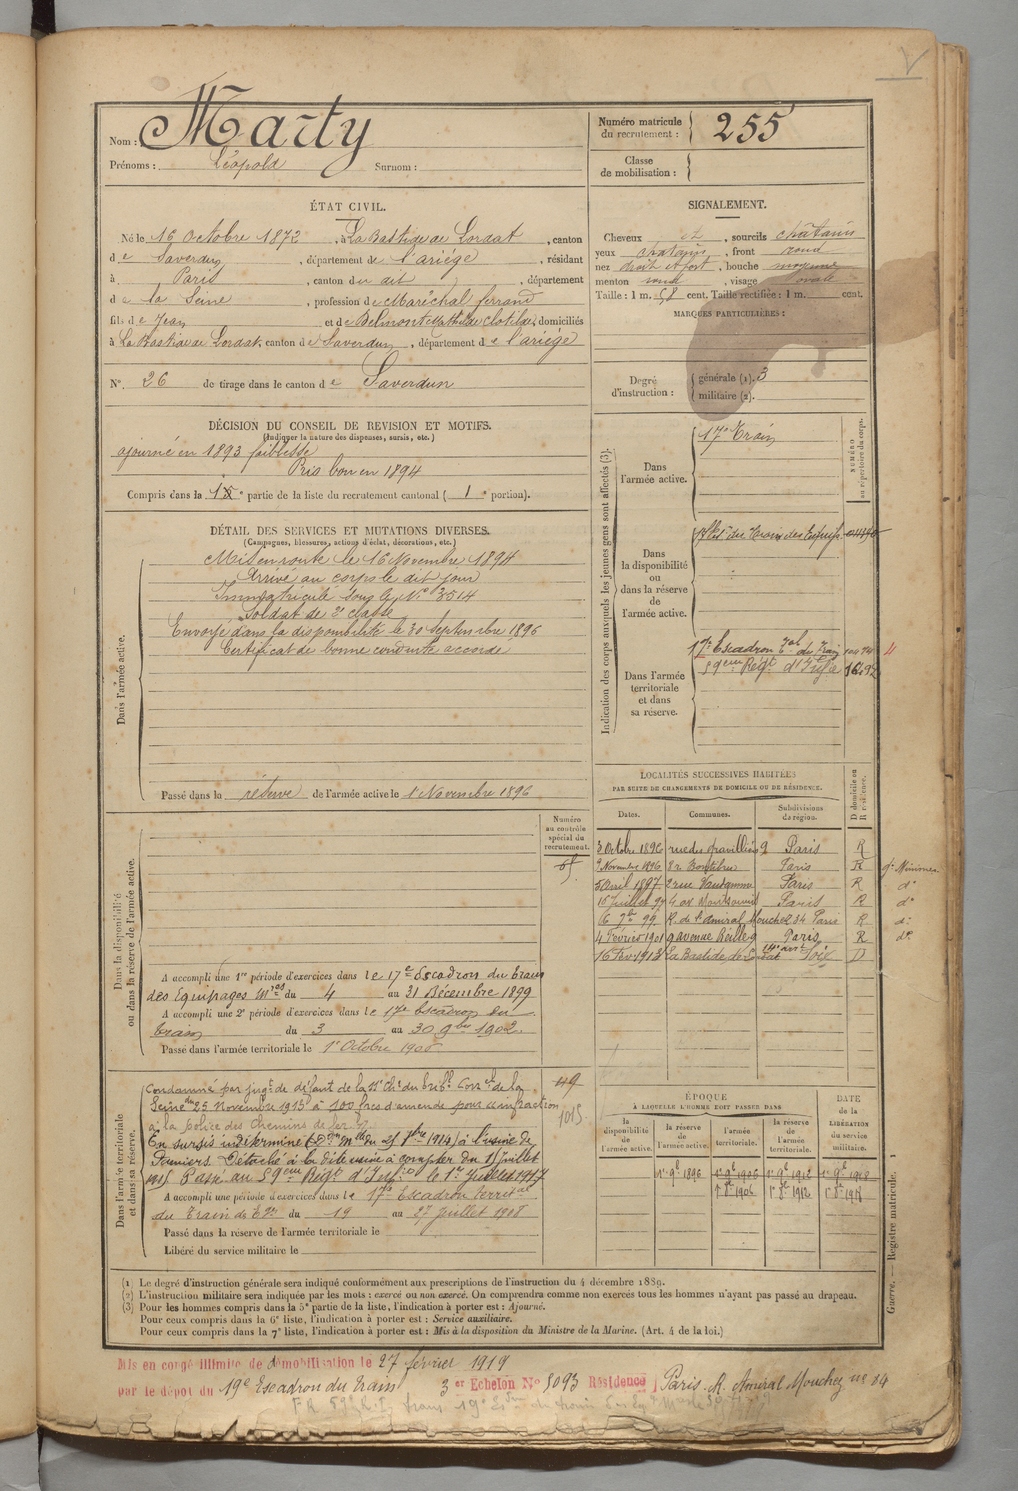 V
Nom : Marty
Prénoms : Léopold Surnom :
Numéro matricule
du recrutement : 255
Classe
de mobilisation :
ÉTAT CIVIL.
Né le 16 Octobre 1872, à La Bastide de Lordat, canton
de Saverdun, département de l'ariège, résidant
à Paris, canton du dit, département
de la Seine, profession de Maréchal ferrand
fils de Jean et de Belmont Mathilde Clotilde, domiciliés
à La Bastide de Lordat, canton de Saverdun, département de l'ariège
N° 26 de tirage dans le canton de Saverdun
SIGNALEMENT.
Cheveux et, sourcils châtains
yeux chatains, front rond
nez droit et fort, bouche moyenne
menton rond, visage ovale
Taille : 1 m. 58 cent. Taille rectifiée : 1 m. cent.
MARQUES PARTICULIÈRES :
Degré
d'instruction :
générale (1). 3
militaire (2).
DÉCISION DU CONSEIL DE REVISION ET MOTIFS.
(Indiquer la nature des dispenses, sursis, etc.)
ajourné en 1893 faiblesse
Pris bon en 1894
Compris dans la partie de la liste du recrutement cantonal (1e portion).
DÉTAIL DES SERVICES ET MUTATIONS DIVERSES.
(Campagnes, blessures, actions d'éclat, décorations, etc.)
Dans l'armée active.
Mis en route le 16 Novembre 1894
Arrivé au corps le dit jour
Immatriculé sous le N° 3514
Soldat de 2e classe
Envoyé dans la disponibilité le 30 Septembre 1896
Certificat de bonne conduite accordé
Passé dans la réserve de l'armée active le 1 Novembre 1896
Indication des corps auxquels les jeunes gens sont affectés (3).
NUMÉRO
au répertoire du corps.
Dans
l'armée active.
17e Train
Dans
la disponibilité
ou
dans la réserve
de
l'armée active.
du Train des Equip.
Dans l'armée
territoriale
et dans
sa réserve.
17e Escadron Tal du Train
59eme Régt d'Infie
LOCALITÉS SUCCESSIVES HABITÉES
PAR SUITE DE CHANGEMENTS DE DOMICILE OU DE RÉSIDENCE.
Dates. Communes. Subdivisions
de région. D domicile ou
R résidence.
3 Octobre 1896 rue des Gravilliers 9 Paris R
9 Novembre 1896 Paris R
5 Avril 1897 2 rue Vandamme Paris R d°
15 Juillet 97 4 av Montsouris Paris R d°
16 7bre 99 R. de l'Amiral Mouchez 84 Paris R d°
4 Février 1901 9 avenue Reille Paris R d°
14e arrt
16 Fév 1913 La Bastide de Lordat Foix D
Numéro
au contrôle
spécial du
recrutement.
Dans la disponibilité
ou dans la réserve de l'armée active.
A accompli une 1re période d'exercices dans le 17e Escadron du train
des Equipages Mres du 4 au 31 Décembre 1899
A accompli une 2e période d'exercices dans le 17e Escadron du
train du 3 au 30 9bre 1902
Passé dans l'armée territoriale le 1er Octobre 1906
Dans l'armée territoriale
et dans sa réserve.
49
1015
Condamné par jugt de défaut de la 11e Ch. du tribl Correl de la
Seine du 25 Novembre 1913 à 100 frcs d'amende pour infraction
à la police des chemins de fer
En sursis indéterminé à l'usine de
Pamiers. Détaché à la dite usine à compter du 1 Juillet
1915 Passé au 59eme Régt d'Inf. le 1er Juillet 1917
A accompli une période d'exercices dans le 17e Escadron territal
du Train des Eq. du 19 au 27 Juillet 1908
Passé dans la réserve de l'armée territoriale le
Libéré du service militaire le
ÉPOQUE
À LAQUELLE L'HOMME DOIT PASSER DANS
DATE
de la
LIBÉRATION
du service
militaire.
la
disponibilité
de
l'armée active.
la réserve
de
l'armée active.
l'armée
territoriale.
la réserve
de
l'armée
territoriale.
1er 9bre 1896 1er 9bre 1906 1er 9bre 1912 1er 9bre 1918
1er 8bre 1906 1er 8bre 1912 1er 8bre 1918
Guerre. — Registre matricule. 1
(1) Le degré d'instruction générale sera indiqué conformément aux prescriptions de l'instruction du 4 décembre 1889.
(2) L'instruction militaire sera indiquée par les mots : exercé ou non exercé. On comprendra comme non exercés tous les hommes n'ayant pas passé au drapeau.
(3) Pour les hommes compris dans la 5e partie de la liste, l'indication à porter est : Ajourné.
Pour ceux compris dans la 6e liste, l'indication à porter est : Service auxiliaire.
Pour ceux compris dans la 7e liste, l'indication à porter est : Mis à la disposition du Ministre de la Marine. (Art. 4 de la loi.)
Mis en congé illimité de démobilisation le 27 février 1919
par le dépôt du 19e Escadron du train 3er Echelon N° 5093 Résidence Paris. R. Amiral Mouchez n° 84